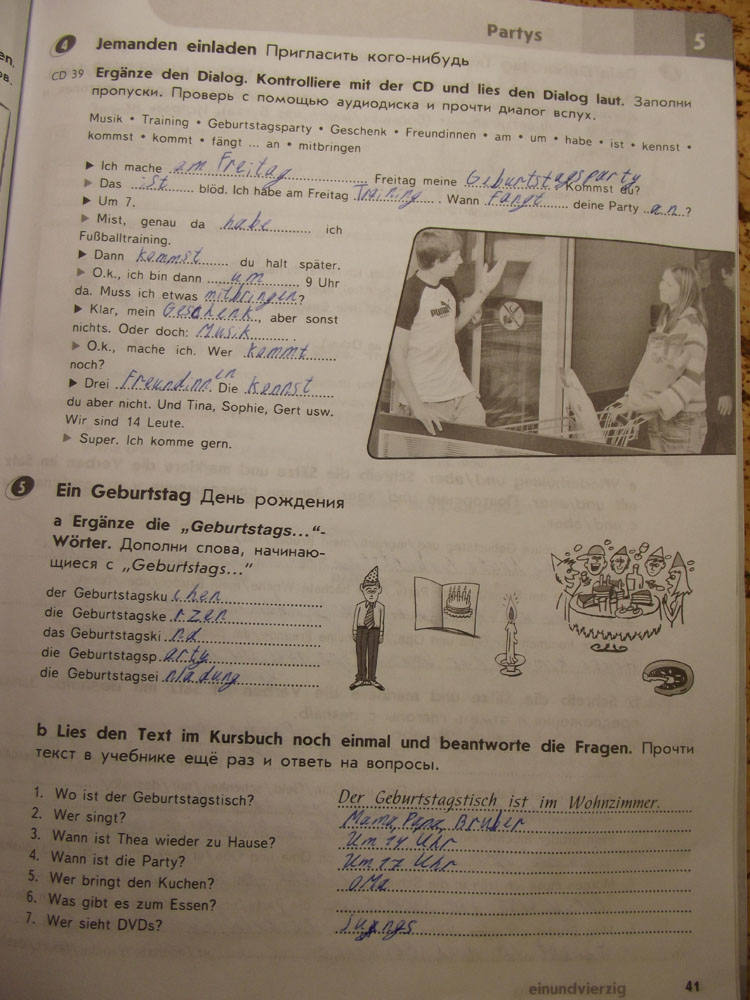 Partys
5
4 Jemanden einladen Пригласить кого-нибудь
CD 39 Ergänze den Dialog. Kontrolliere mit der CD und lies den Dialog laut. Заполни
пропуски. Проверь с помощью аудиодиска и прочти диалог вслух.
Musik • Training • Geburtstagsparty • Geschenk • Freundinnen • am • um • habe • ist • kennst •
kommst • kommt • fängt ... an • mitbringen
▶ Ich mache am Freitag Freitag meine Geburtstagsparty Kommst du?
▶ Das ist blöd. Ich habe am Freitag Training. Wann fängt deine Party an?
▶ Um 7.
▶ Mist, genau da habe ich
Fußballtraining.
▶ Dann kommst du halt später.
▶ O.k., ich bin dann um 9 Uhr
da. Muss ich etwas mitbringen?
▶ Klar, mein Geschenk, aber sonst
nichts. Oder doch: Musik.
▶ O.k., mache ich. Wer kommt
noch?
▶ Drei Freundinnen. Die kennst
du aber nicht. Und Tina, Sophie, Gert usw.
Wir sind 14 Leute.
▶ Super. Ich komme gern.
5 Ein Geburtstag День рождения
a Ergänze die „Geburtstags...“-
Wörter. Дополни слова, начинаю-
щиеся с „Geburtstags...“
der Geburtstagsku chen
die Geburtstagske rzen
das Geburtstagski nd
die Geburtstagsp arty
die Geburtstagsei nladung
b Lies den Text im Kursbuch noch einmal und beantworte die Fragen. Прочти
текст в учебнике ещё раз и ответь на вопросы.
1. Wo ist der Geburtstagstisch? Der Geburtstagstisch ist im Wohnzimmer.
2. Wer singt? Mama, Papa, Bruder
3. Wann ist Thea wieder zu Hause? Um 14 Uhr
4. Wann ist die Party? Um 17 Uhr
5. Wer bringt den Kuchen? OMa
6. Was gibt es zum Essen?
7. Wer sieht DVDs? Jungs
einundvierzig 41